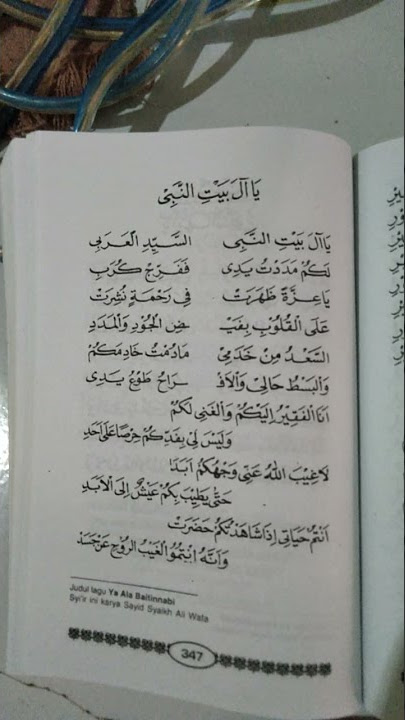 يَا آلَ بَيْتِ النَّبِىْ
يَاآلَ بَيْتِ النَّبِى السَّيِّدِ الْعَرَبِى
لَكُمْ مَدَدْتُ يَدِى فَفَرِّجْ كُرَبِ
يَاعِزَّةً ظَهَرَتْ فِى رَحْمَةٍ نُشِرَتْ
عَلَى الْقُلُوْبِ بِفَيْـ ـضِ الْجُوْدِ وَالْمَدَدِ
السَّعْدُ مِنْ خَدَمِىْ مَادُمْتُ خَادِمَكُمْ
وَالْبَسْطُ حَالِىْ وَالْاَفْـ ـرَاحُ طَوْعُ يَدِىْ
اَنَا الْفَقِيْرُ اِلَيْكُمْ وَالْغَنِى لَكُمْ
وَلَيْسَ لِىْ بَعْدَكُمْ حِرْصًا عَلَى اَحَدِ
لَاغَيَّبَ اللهُ عَنِّى وَجْهَكُمْ اَبَدًا
حَتَّى يَطِيْبَ بِكُمْ عَيْشٌ اِلَى الْاَبَدِ
اَنْتُمْ حَيَاتِى اِذَا شَاهَدْتُكُمْ حَضَرَتْ
وَاَنَّهُ الرُّوْحِ عَنْ جَسَدِ
Judul lagu Ya Ala Baitinnabi
Syi'ir ini karya Sayid Syaikh Ali Wafa
347